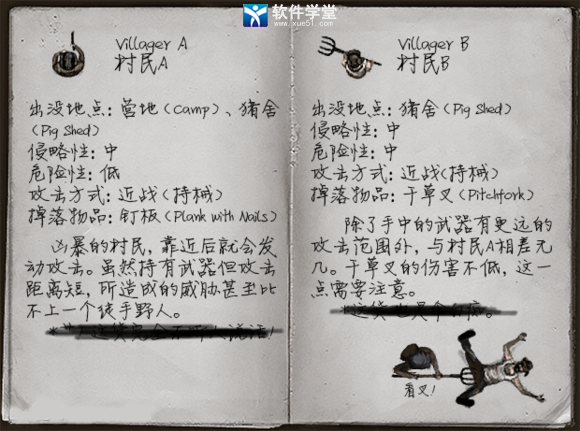 软件学堂
www.xue51.com
Villager A
村民A
出没地点：营地（Camp）、猪舍
（Pig Shed）
侵略性：中
危险性：低
攻击方式：近战（持械）
掉落物品：钉板（Plank with Nails）
凶暴的村民，靠近后就会发
动攻击。虽然持有武器但攻击
距离短，所造成的威胁甚至比
不上一个徒手野人。
Villager B
村民B
出没地点：猪舍（Pig Shed）
侵略性：中
危险性：中
攻击方式：近战（持械）
掉落物品：干草叉（Pitchfork）
除了手中的武器有更远的
攻击范围外，与村民A相差无
几。干草叉的伤害不低，这一
点需要注意。
看叉！